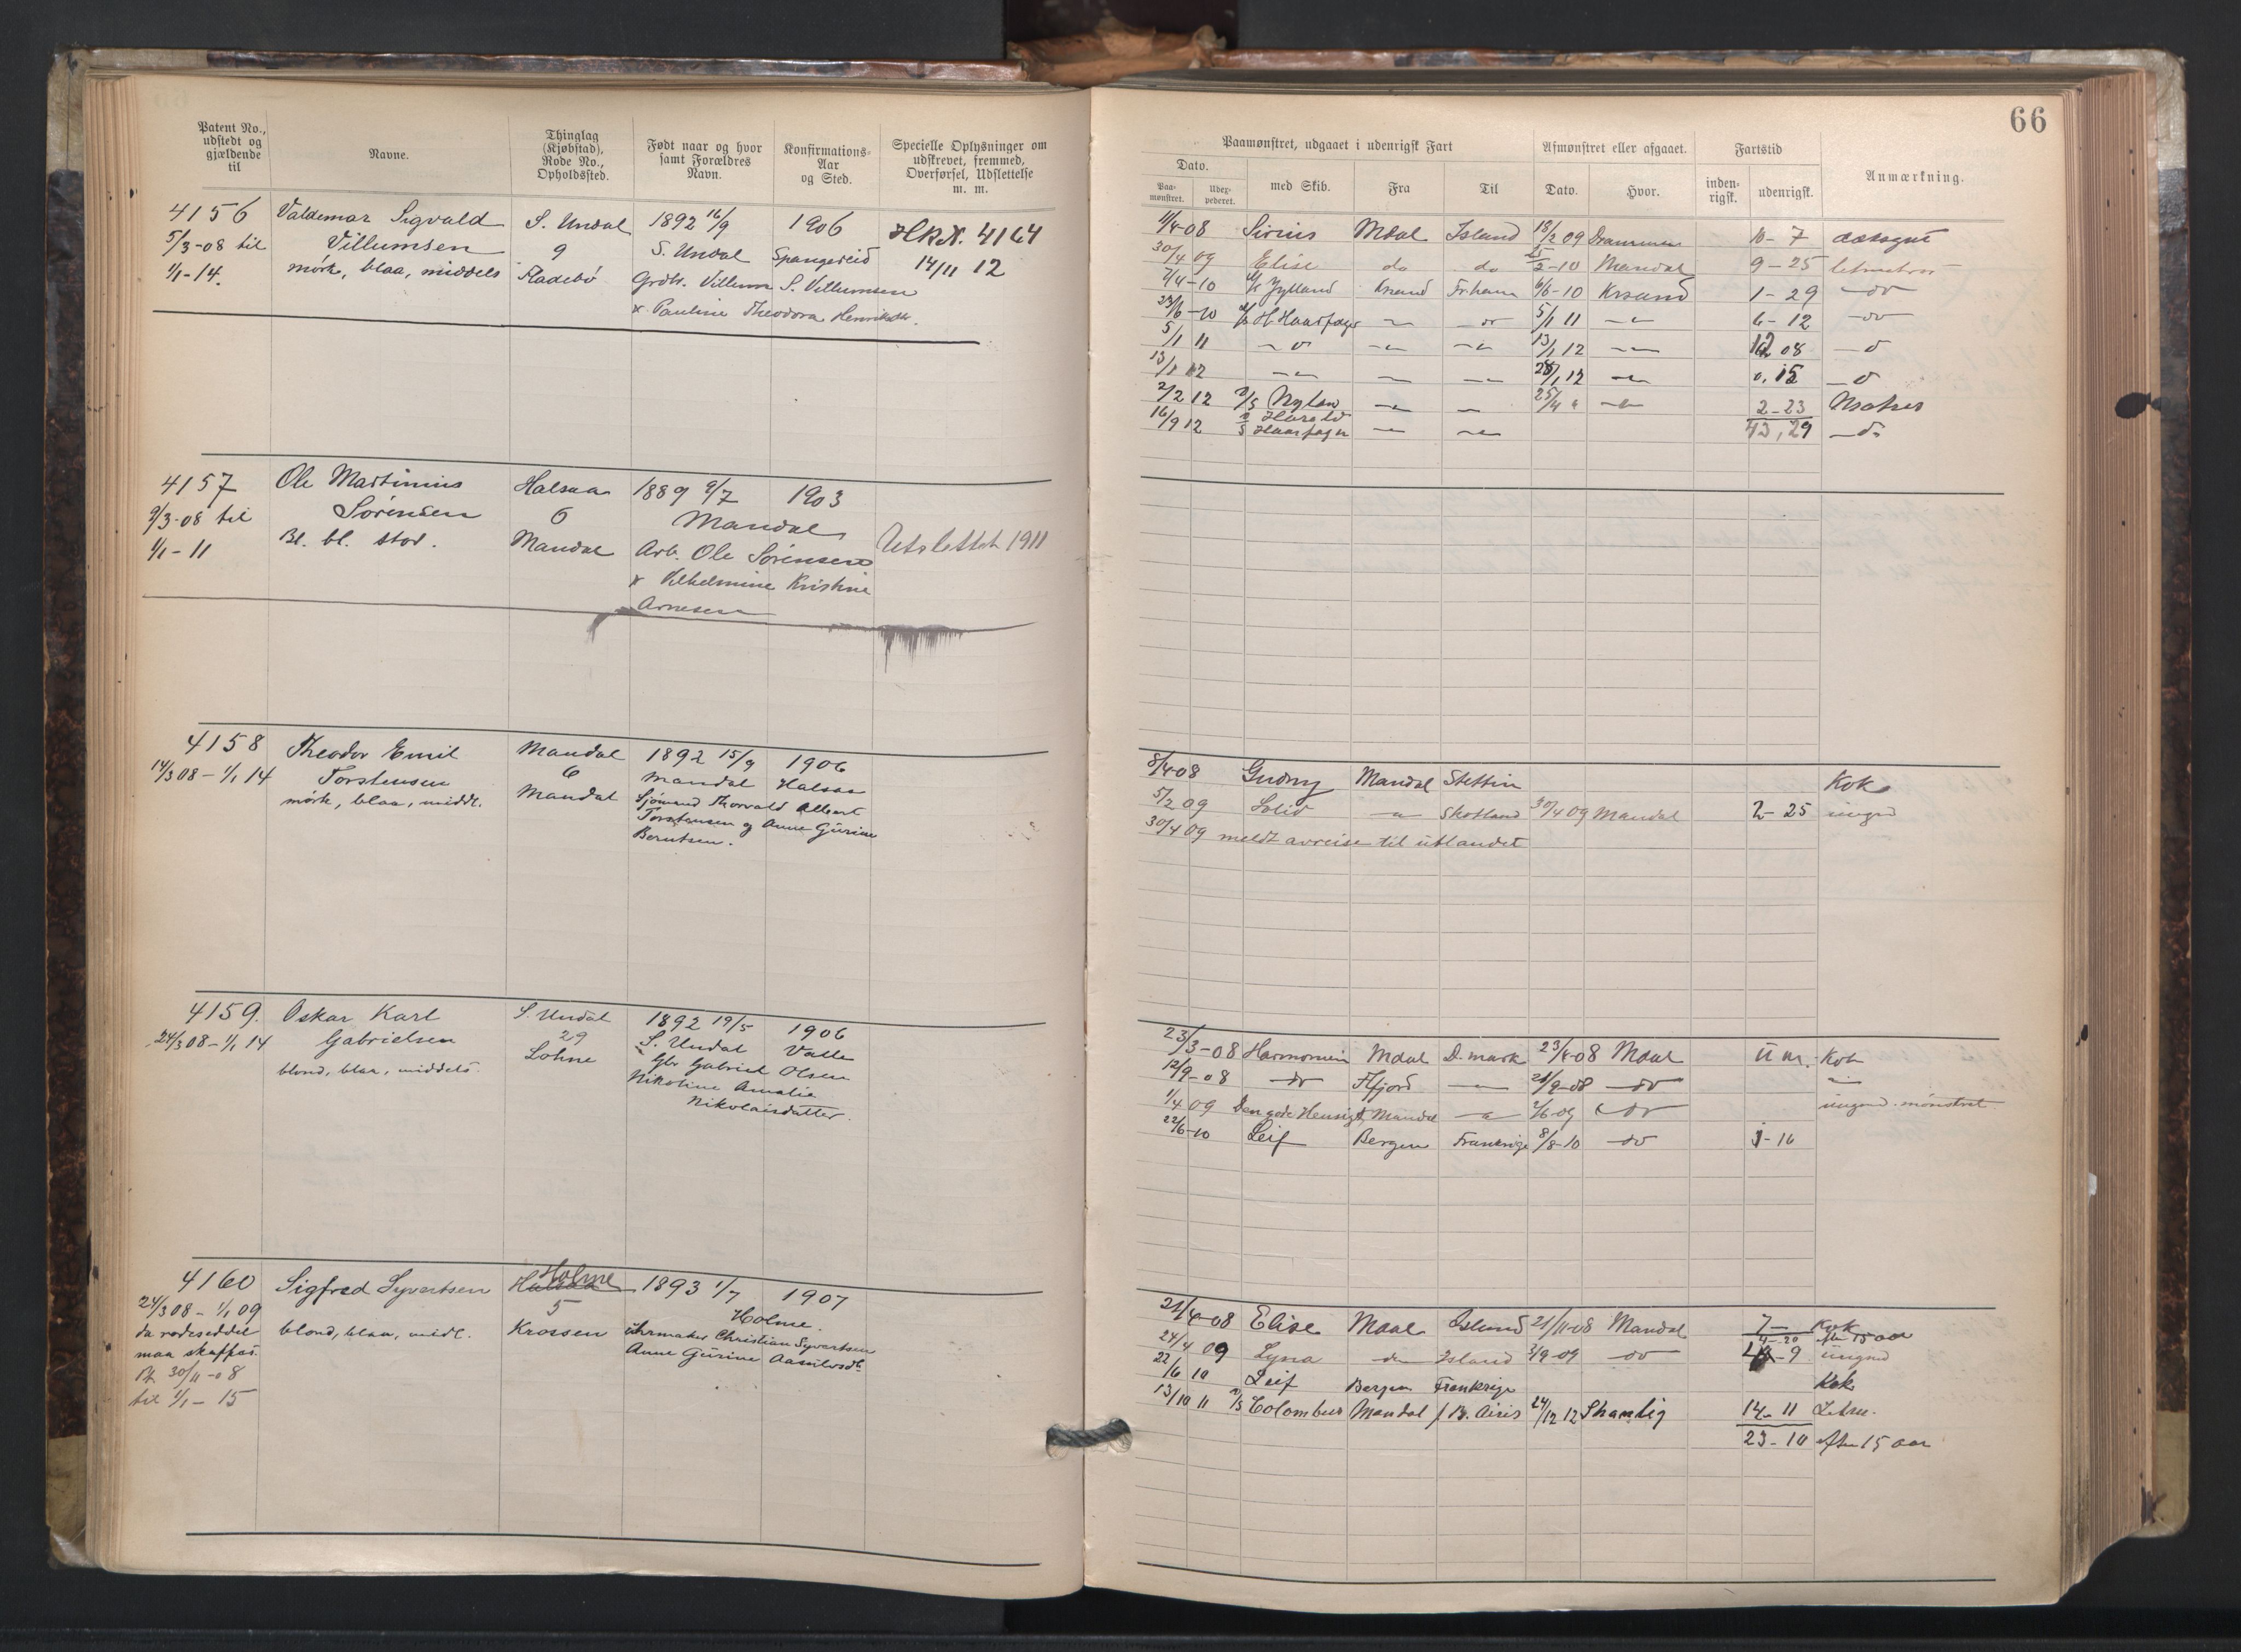 66
Patent No., udstedt og gjældende til
Navne.
Thinglag (Kjøbstad), Rode No., Opholdssted.
Født naar og hvor samt Forældres Navn.
Konfirmations-Aar og Sted.
Specielle Oplysninger om udskrevet, fremmed, Overførsel, Udslettelse m. m.
Paamønstret, udgaaet i udenrigsk Fart
Afmønstret eller afgaaet.
Fartstid
Anmærkning.
Dato.
Paa-mønstret.
Uder-pederet.
med Skib.
Fra
Til
Dato.
Hvor.
inden-rigsk.
udenrigsk.
4156 Valdemar Sigvald S. Undal 1892 16/9 1906 4164
5/3-08 til Villumsen 9 S. Undal Spangereid 14/11 12
1/1-14. mørk, blaa, middels Fladebø Villum S. Villumsen
x Pauline Theodora
11/4-08 Sirius Mdal Island 18/2 09 Drammen 10-7
30/4 09 Elise do do 2-10 Mandal 9-25
7/4-10 Jylland Krsand Fr.havn 6/6-10 Krsand 1-29 do
28/6-10 H. Haarfager 5/1 11 6-12 do
5/1 11 13/1 12 12 08
13/1 12 28/1 12 0.15
2/2 12 25/4 2-23
16/9 12 Harald Haarfager 43,29
4157 Ole Martinius Halsaa 1889 9/7 1903
9/3-08 til Sørensen 6 Mandal Utslettet 1911
1/1-11 Bl. bl. stor. Mandal Arb. Ole Sørensen
x Vilhelmine Kristine
Arnesen
4158 Theodor Emil Mandal 1892 15/9 1906
14/3 08 - 1/1 14 Torstensen 6 Mandal Halsaa
mørk, blaa, middl. Mandal Sjømand Thorvald Albert
Torstensen og Anne Gurine
Berntsen.
8/4-08 Gudny Mandal Stettin Kok
5/2 09 Solid Skotland 30/4 09 Mandal 2-25 ungmd
30/4 09 meldt avreise til utlandet
4159. Oskar Karl S. Undal 1892 19/5 1906
24/3 08 - 1/1 14 Gabrielsen 29 S. Undal Valle
blond, blaa, middels. Lohne Gbr Gabriel Olsen
Nikoline Amalie
Nikolaisdatter.
23/3-08 Harmonien Mdal D.mark 23/8-08 Mdal Kok
12/9-08 do 28/9-08 do
1/4 09 Den gode Hensigt Mandal 2/6 09 do ungmd. mønstret
22/6-10 Leif Bergen Frankrige 8/8-10 do 1-16
4160 Sigfred Syvertsen Holme 1893 1/7 1907
24/3 08 - 1/1 09 5 Holme.
da rodeseddel blond, blaa, midl. Krossen Uhrmaker Christian Syvertsen
maa skaffes. Anne Gurine
30/11-08
til 1/1-15
21/4-08 Elise Mdal Island 21/11-08 Mandal 7- Kok
4-20 efter 15 aar
24/4 09 Lyna do Island 3/9-09 do 9 ungmd
22/6 10 Leif Bergen Frankrige Kok
13/10 11 Colombus Mandal B. Aires 24/12 12 14-11
23-10 efter 15 aar